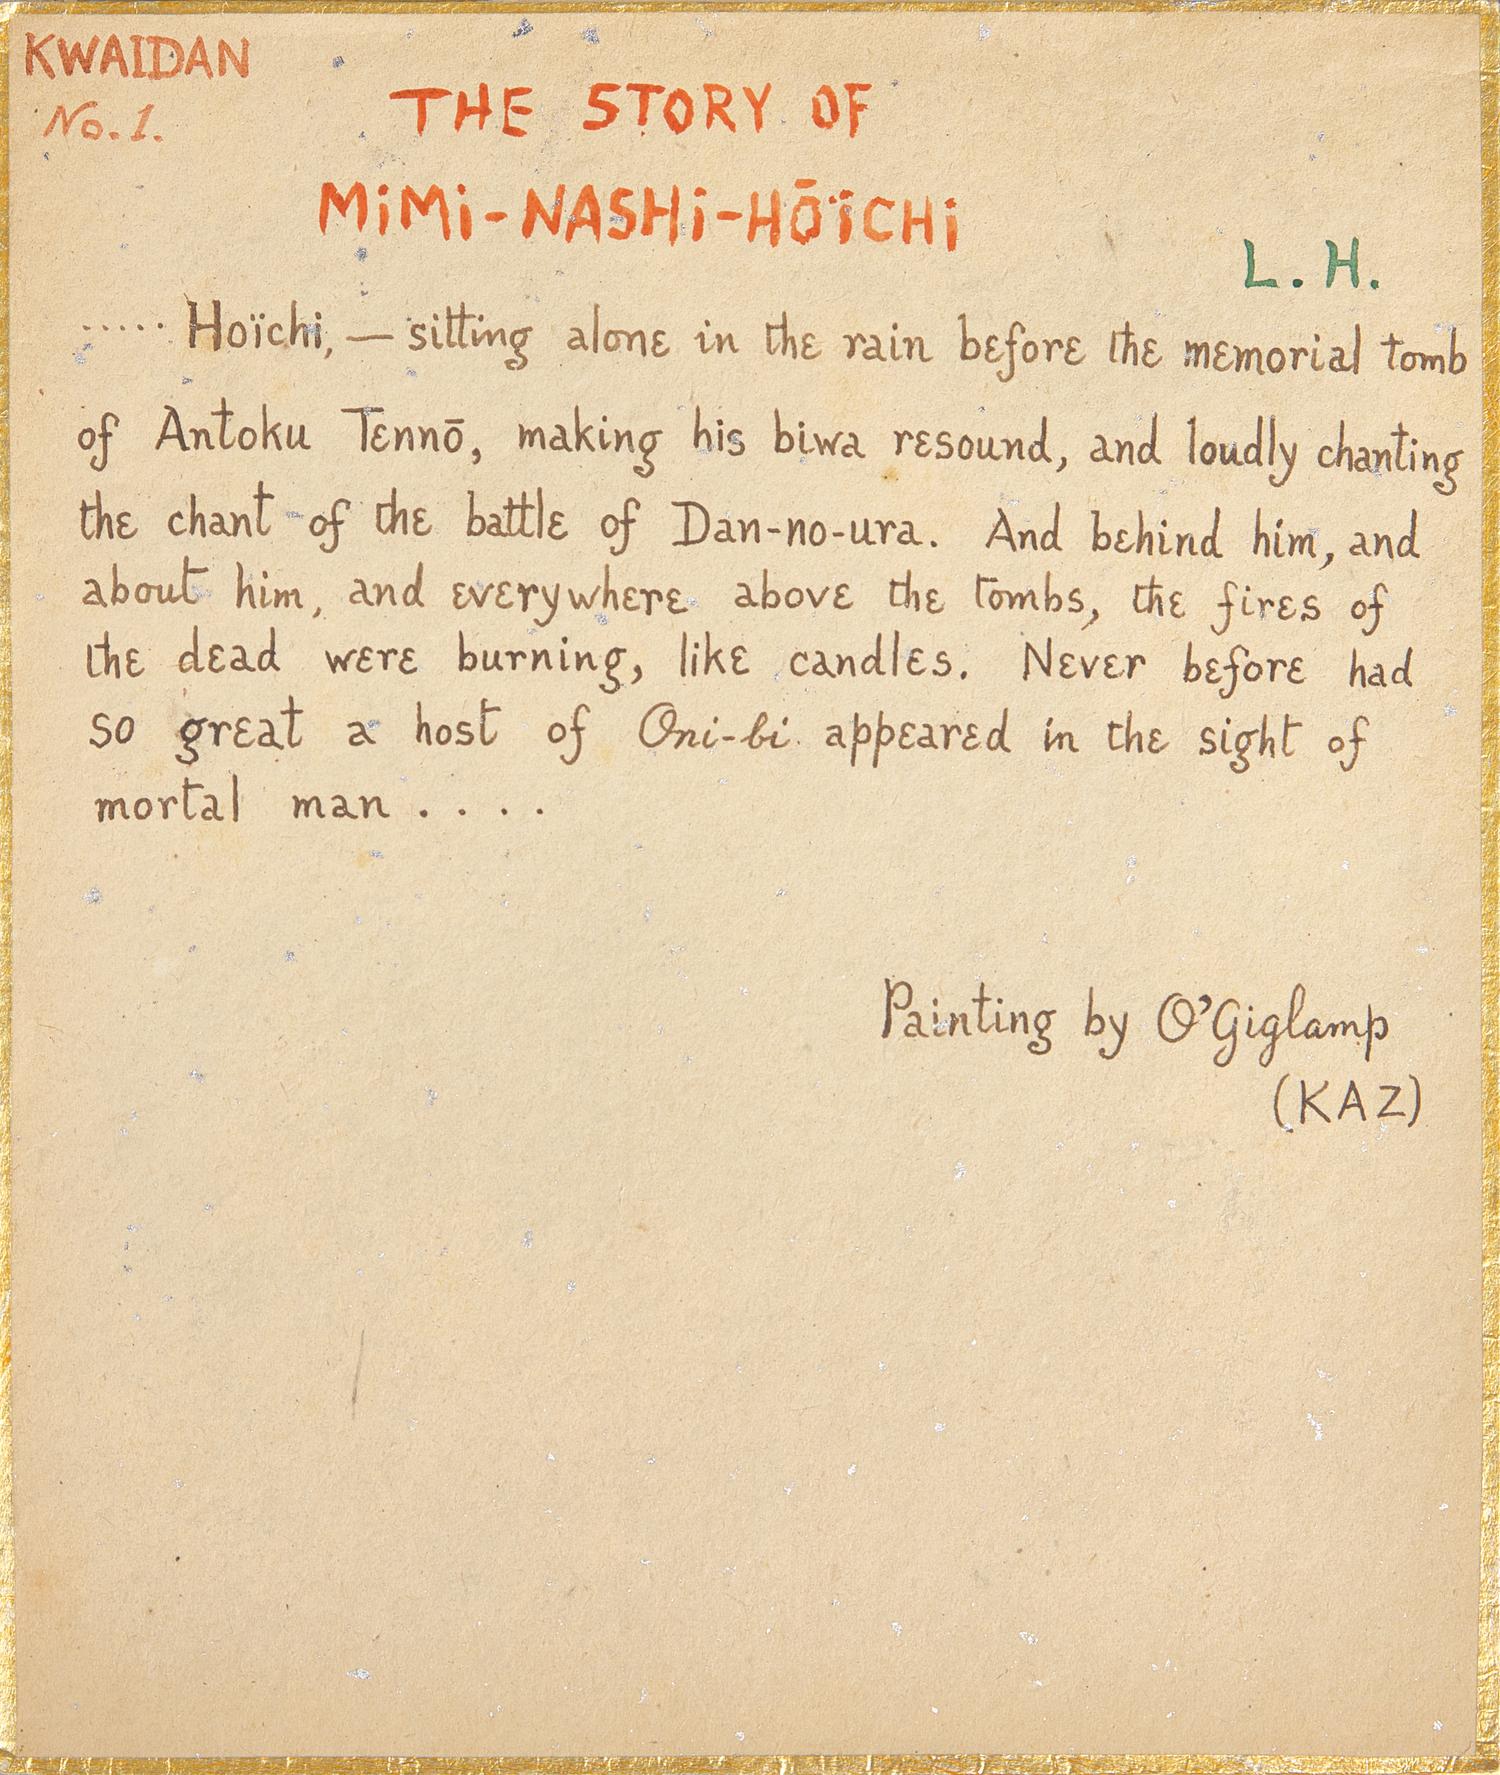 KWAIDAN
No. 1.
THE STORY OF
MiMi-NASHi-HŌÏCHi
L. H.
..... Hoïchi, — sitting alone in the rain before the memorial tomb
of Antoku Tennō, making his biwa resound, and loudly chanting
the chant of the battle of Dan-no-ura. And behind him, and
about him, and everywhere above the tombs, the fires of
the dead were burning, like candles. Never before had
so great a host of Oni-bi appeared in the sight of
mortal man . . . .
Painting by O'Giglamp
(KAZ)